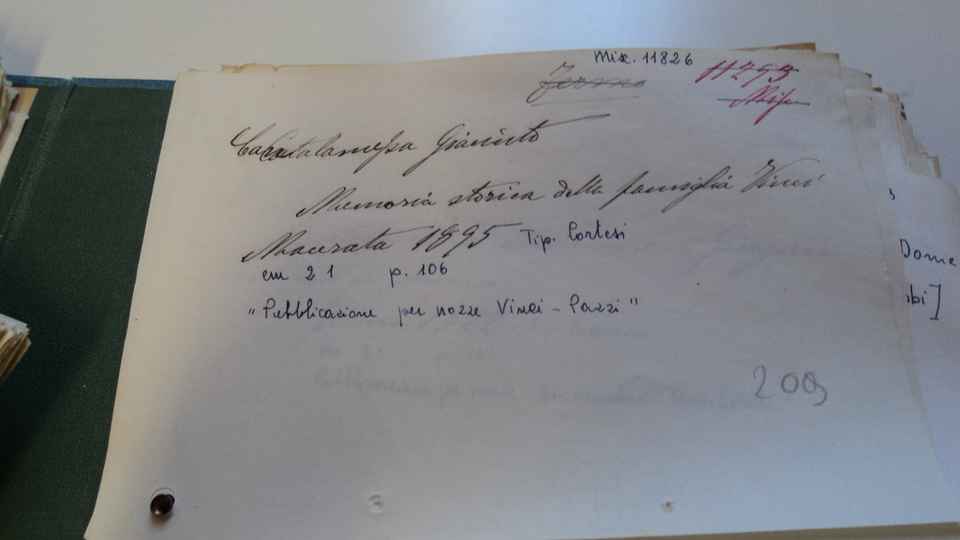 Misc. 11826
Fermo
11293
Misc
Cantalamessa Giacinto
Memoria storica della famiglia Vinci
Macerata 1895 Tip. Cortesi
cm 21 p. 106
"Pubblicazione per nozze Vinci - Pazzi"
Dome
bi]